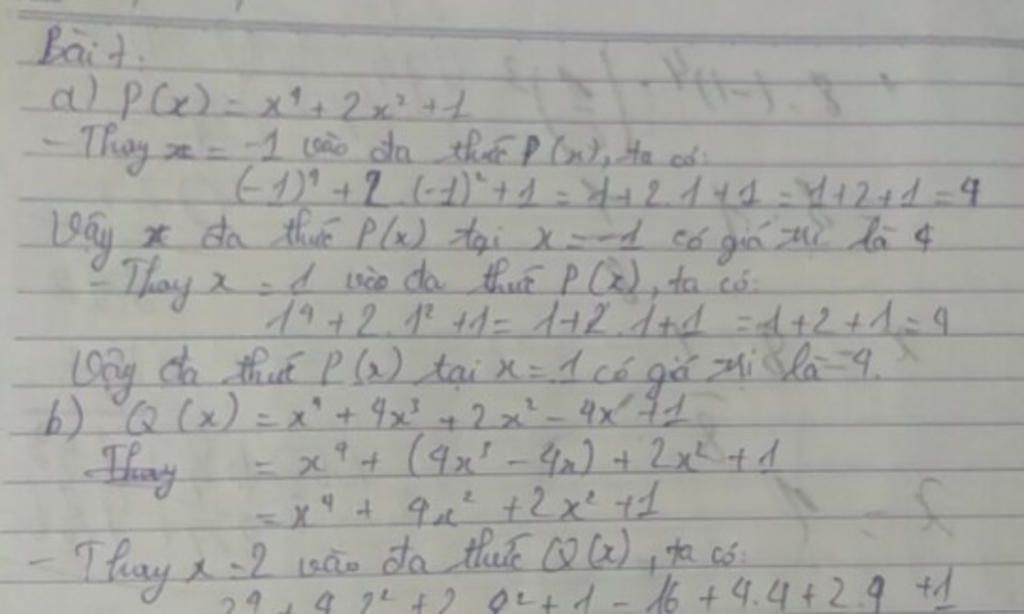 Bài 7.
a) P(x) = x⁴ + 2x² + 1
- Thay x = -1 vào đa thức P(x), ta có:
(-1)⁴ + 2.(-1)² + 1 = 1 + 2.1 + 1 = 1 + 2 + 1 = 4
Vậy đa thức P(x) tại x = -1 có giá trị là 4
- Thay x = 1 vào đa thức P(x), ta có:
1⁴ + 2.1² + 1 = 1 + 2.1 + 1 = 1 + 2 + 1 = 4
Vậy đa thức P(x) tại x = 1 có giá trị là 4.
b) Q(x) = x⁴ + 4x³ + 2x² - 4x + 1
Thay = x⁴ + (4x³ - 4x) + 2x² + 1
= x⁴ + 4x² + 2x² + 1
- Thay x = 2 vào đa thức Q(x), ta có:
2⁴ + 4.2² + 2. 2² + 1 = 16 + 4.4 + 2.4 + 1